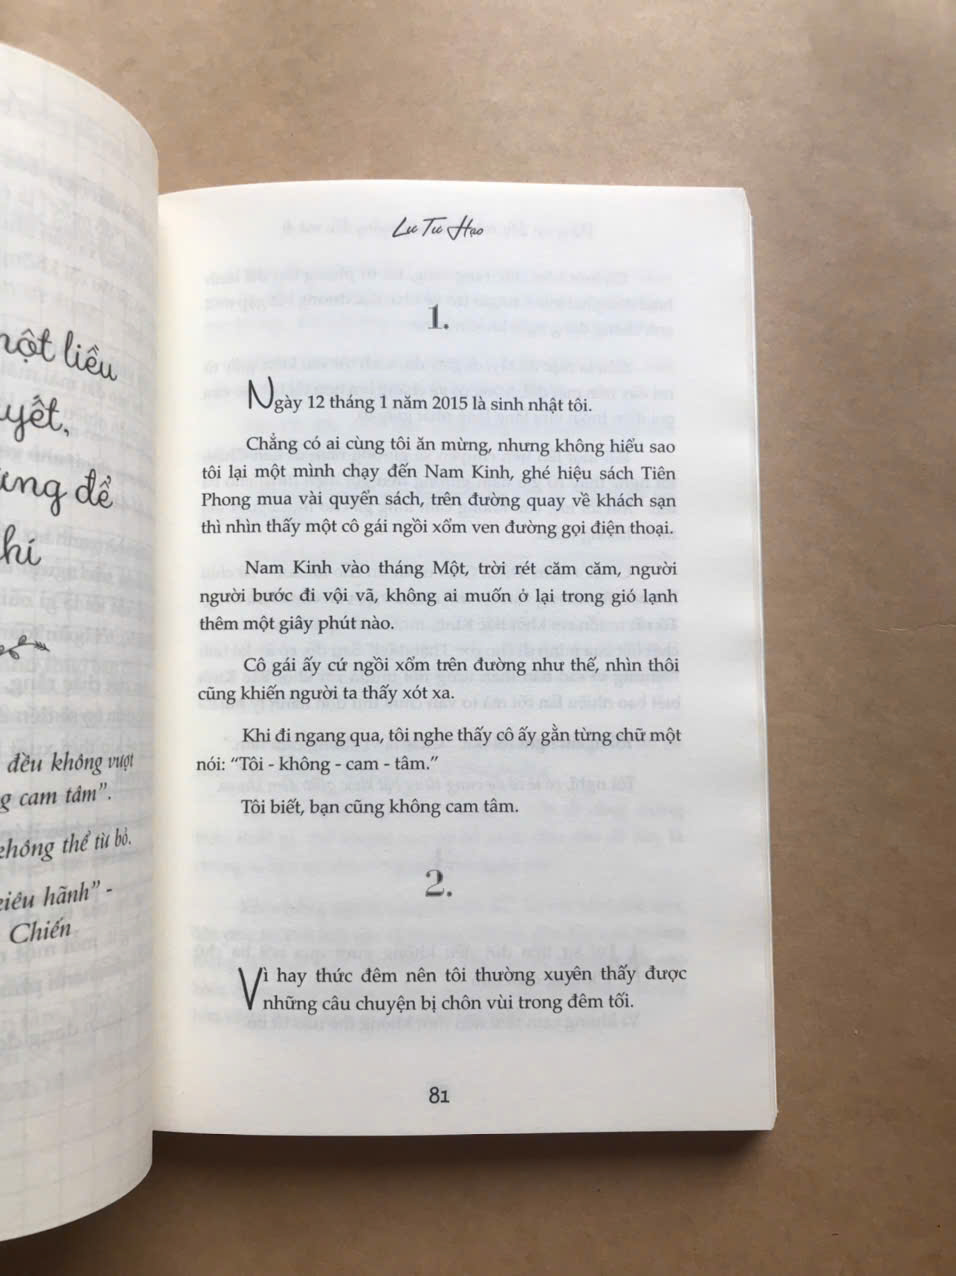 một liều
yết,
để
hí
đều không vượt
cam tâm”.
không thể từ bỏ.
kiêu hãnh” -
Chiến
Lư Tư Hạo
1.
Ngày 12 tháng 1 năm 2015 là sinh nhật tôi.
Chẳng có ai cùng tôi ăn mừng, nhưng không hiểu sao
tôi lại một mình chạy đến Nam Kinh, ghé hiệu sách Tiên
Phong mua vài quyển sách, trên đường quay về khách sạn
thì nhìn thấy một cô gái ngồi xổm ven đường gọi điện thoại.
Nam Kinh vào tháng Một, trời rét căm căm, người
người bước đi vội vã, không ai muốn ở lại trong gió lạnh
thêm một giây phút nào.
Cô gái ấy cứ ngồi xổm trên đường như thế, nhìn thôi
cũng khiến người ta thấy xót xa.
Khi đi ngang qua, tôi nghe thấy cô ấy gằn từng chữ một
nói: “Tôi - không - cam - tâm.”
Tôi biết, bạn cũng không cam tâm.
2.
Vì hay thức đêm nên tôi thường xuyên thấy được
những câu chuyện bị chôn vùi trong đêm tối.
81